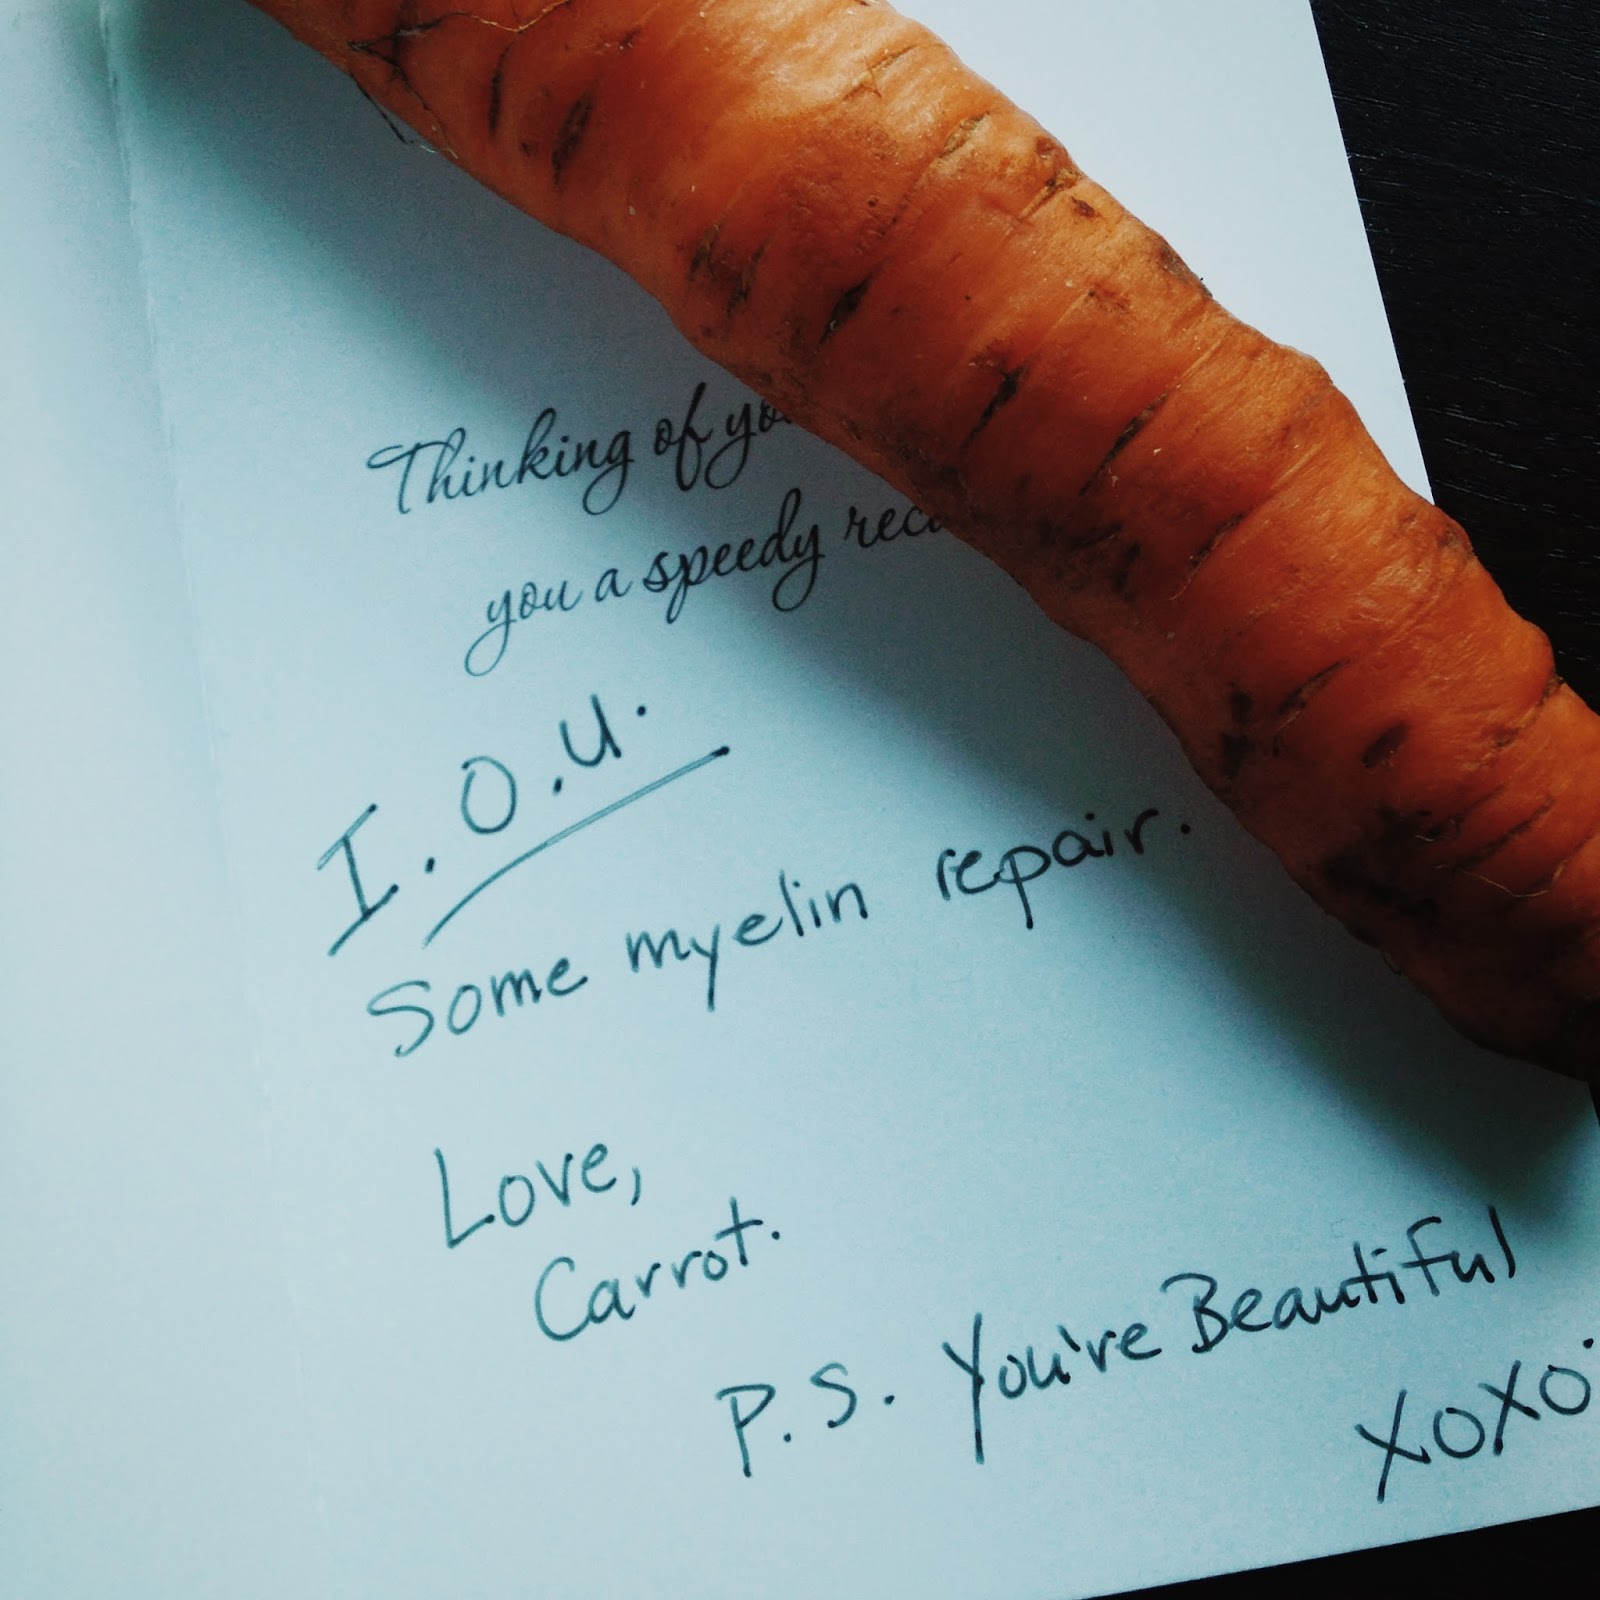 Thinking of
you a speedy
I.O.U.
Some myelin repair.
Love,
Carrot.
P.S. You're Beautiful
XOXO.